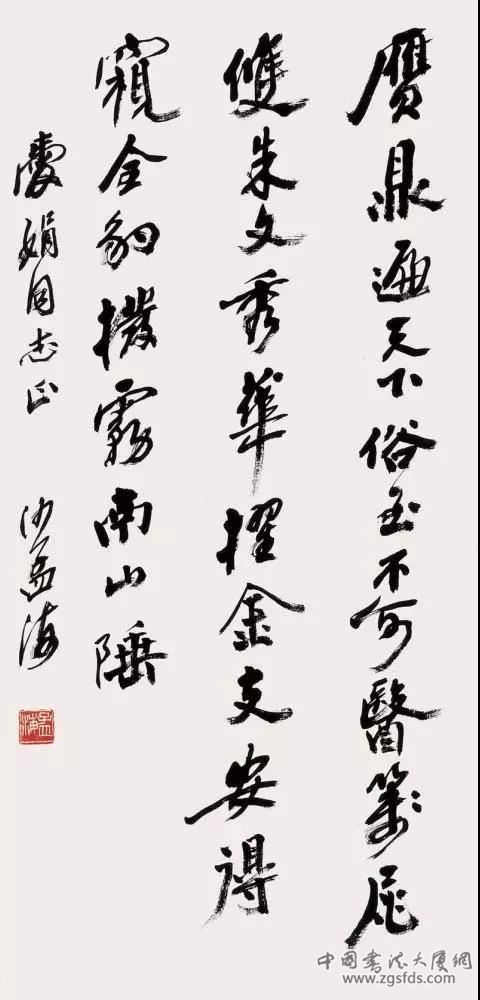 贋鼎遍天下俗至不可醫箋尾
雙朱文秀華擢金支安得
窺全豹撥霧南山陲
慶娟同志正 沙孟海
孟海
中國書法大厦網
www.zgsfds.com